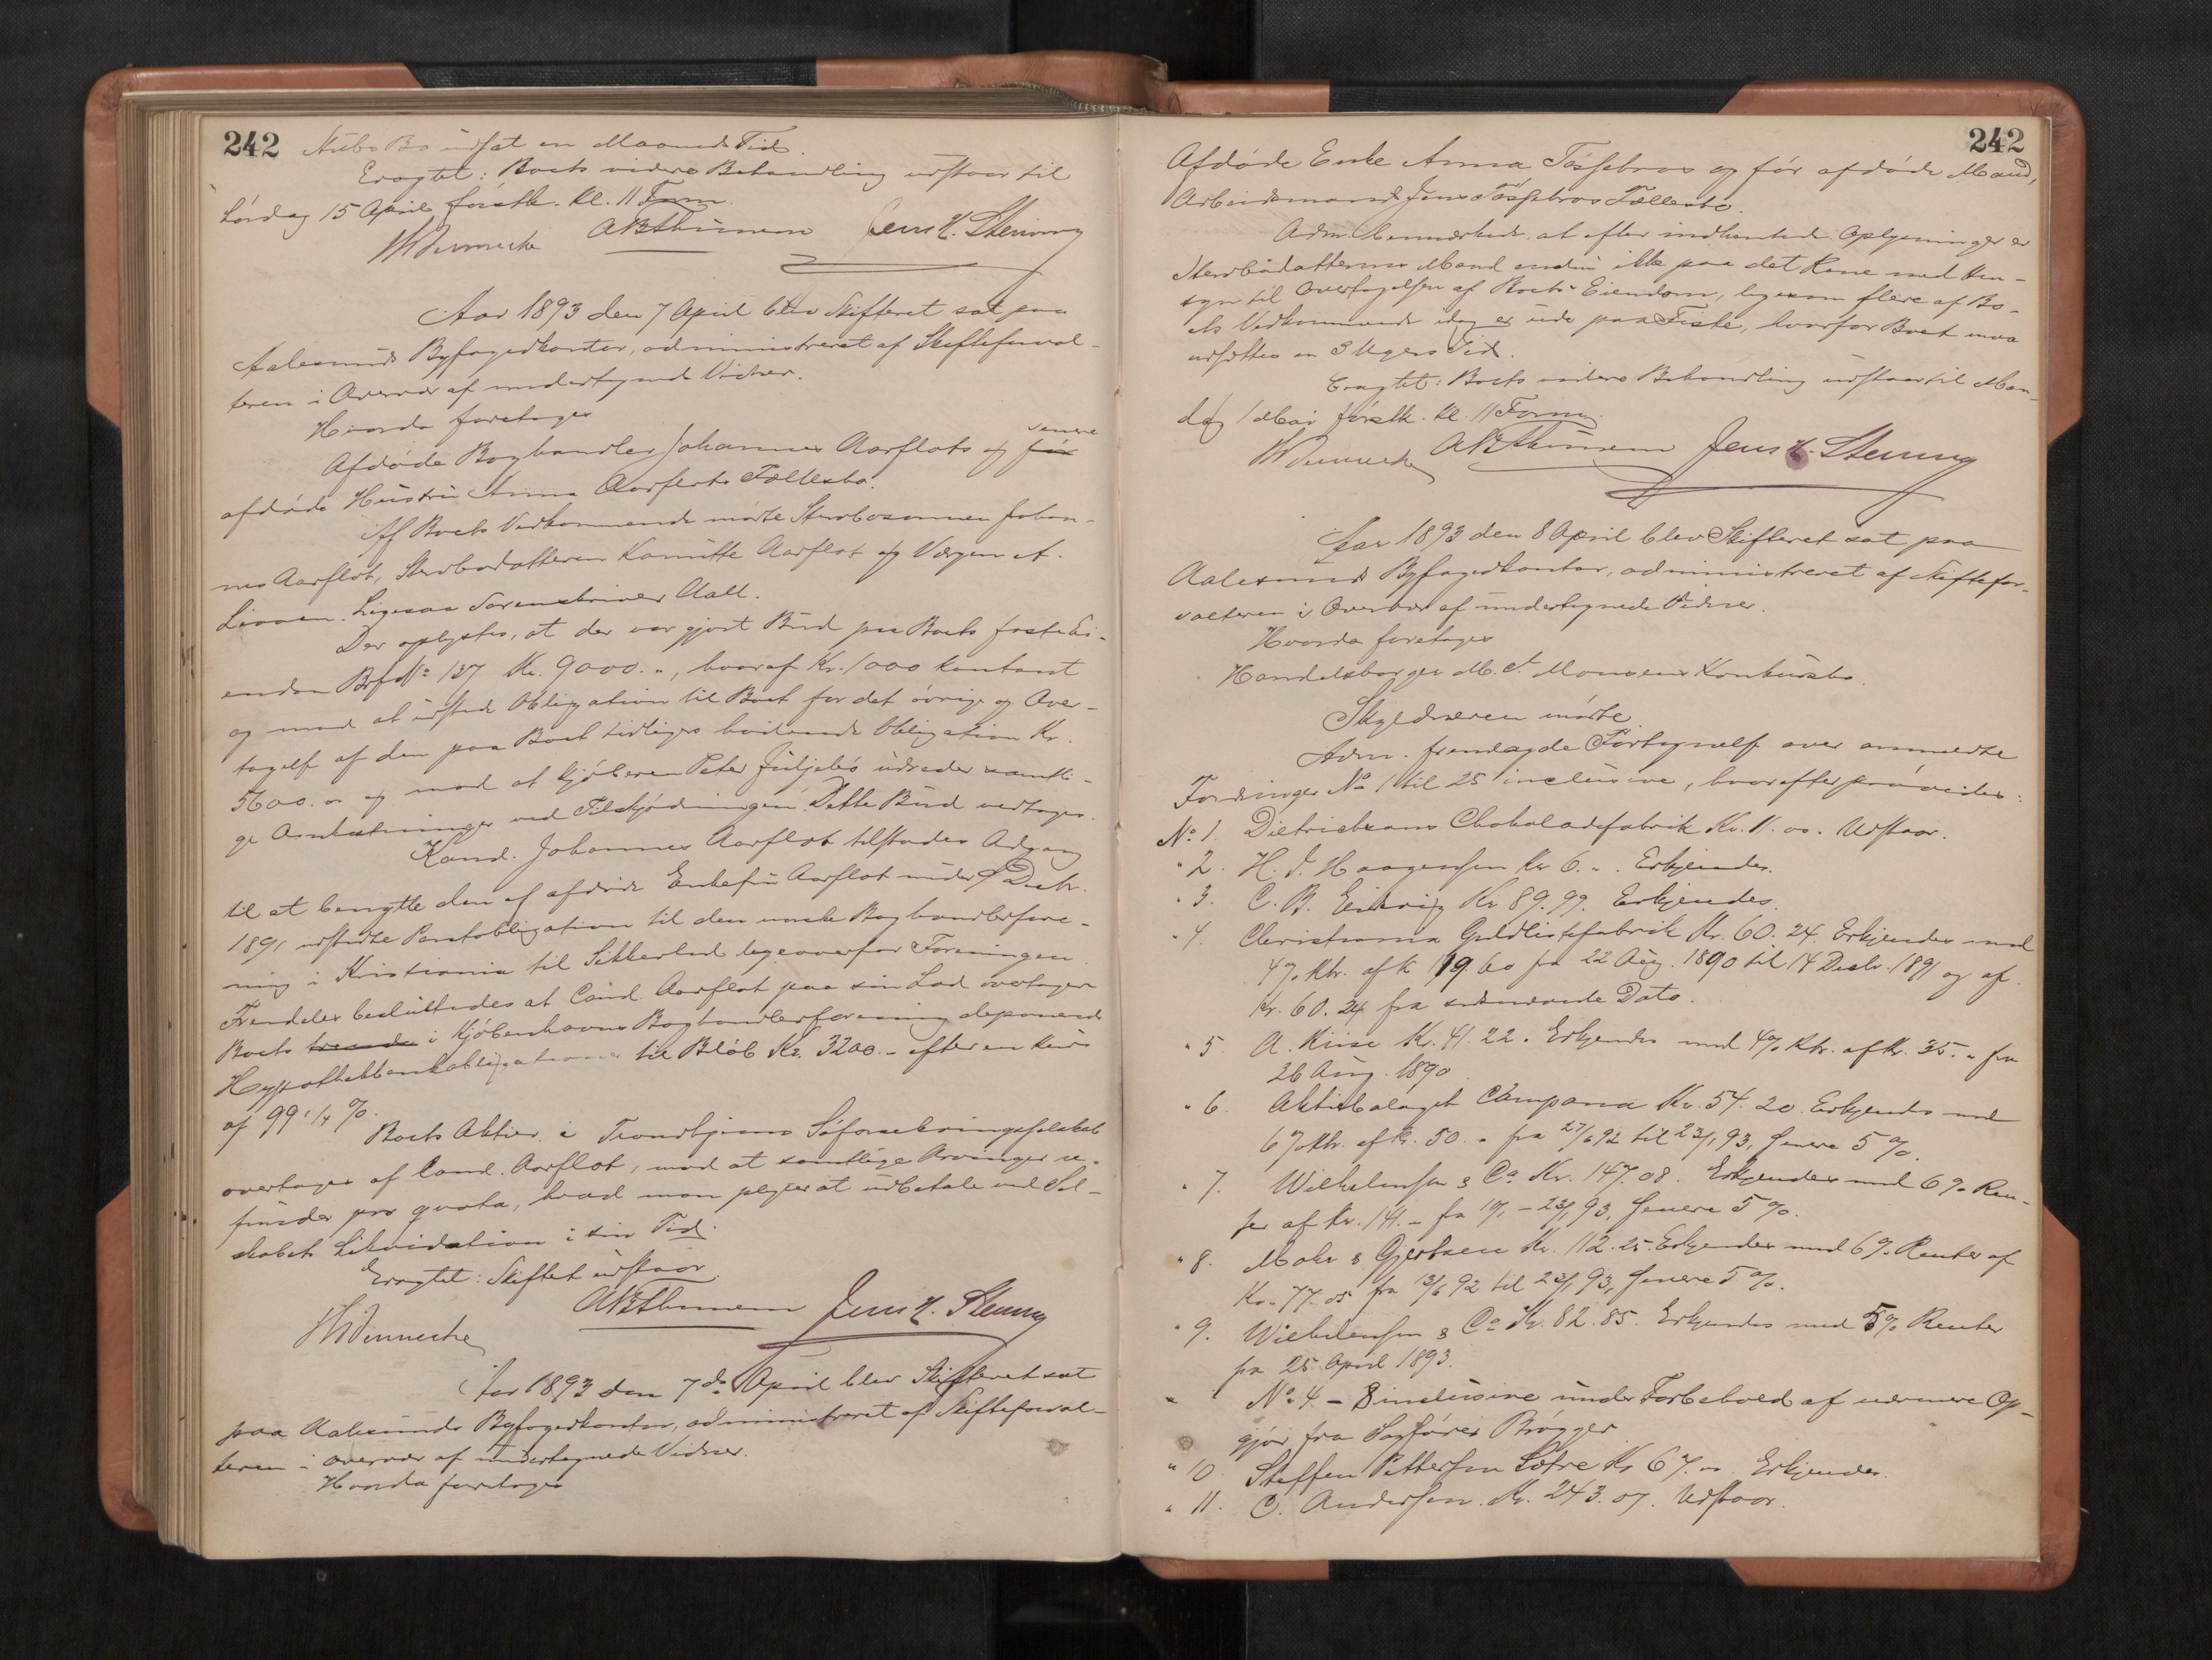 242
Stubs Bo udsat en Maaneds Tid.
Eragtet: Boets videre Behandling udstaar til
Lørdag 15 April førstk. Kl. 11 Form.
Jens H. Stenning
Aar 1893 den 7 April blev Skifteret sat paa
Aalesunds Byfogedkontor, administreret af Skifteforval-
teren i Overvær af undertegnede Vidner.
Hvorda foretoges
senere
Afdøde Boghandler Johannes Aarflots og før
afdøde Hustru Anna Aarflots Fællesbo.
Af Boets Vedkommende mødte Stervbosønnen Johan-
nes Aarflot, Stervbodatteren Kamitte Aarflot og Værgen A.
Liaaen. Ligesaa Sorenskriver Aall.
Der oplystes, at der var gjort Bud paa Boets faste Ei-
endom Brfd No 137 Kr. 9000.", hvoraf Kr. 1000 kontant
og mod at udstede Obligation til Boet for det øvrige og Over-
tagelse af den paa Boet tidligere heftende Obligation Kr.
5600.00 og mod at Kjøberen Peter Juljebø udreder samtli-
ge Omkostninger ved Tilskjødningen. Dette Bud vedtoges.
Kand. Johannes Aarflot tilstodes Adgang
til at benytte den af afdøde Enkefru Aarflot under 9 Decbr.
1891 udstedte Pantobligation til den norske Boghandlerfore-
ning i Kristiania til Sikkerhed ligeoverfor Foreningen.
Fremdeles besluttedes at Cand. Aarflot paa sin Lod overtager
Boets i Kjøbenhavns Boghandlerforening deponerede
Hypothekbankobligationer til Beløb Kr. 3200.- efter en Kurs
af 99 1/4 %.
Boets Aktier i Trondhjems Søforsikringsselskab
overtages af Cand. Aarflot, mod at samtlige Arvinger re-
funder pro qvota, hvad man pligter at udbetale ved Sel-
skabets Likvidation i sin Tid.
Eragtet: Skiftet udstaar.
Jens H. Stenning
Aar 1893 den 7de April blev Skifteret sat
paa Aalesunds Byfogedkontor, administreret af Skifteforval-
teren i Overvær af undertegnede Vidner.
Hvorda foretoges
242
Afdøde Enke Anna Tøssebros og før afdøde Mand,
Arbeidsmand Jens Tøssebros Fællesbo.
Adm. bemærkede, at efter indhentede Oplysninger er
Stervbodatterens Mand endnu ikke paa det Rene med Hen-
syn til Overtagelsen af Boets Eiendom, ligesom flere af Bo-
ets Vedkommende idag er ude paa Fiske, hvorfor Boet maa
udsættes en 3 Ugers Tid.
Eragtet: Boets videre Behandling udstaar til Man-
dag 1 Mai førstk. Kl. 11 Form.
Jens H. Stenning
Aar 1893 den 8 April blev Skifteret sat paa
Aalesunds Byfogedkontor, administreret af Skiftefor-
valteren i Overvær af undertegnede Vidner.
Hvorda foretoges
Handelsborger M. A. Monsens Konkursbo.
Skyldneren mødte.
Adm. fremlagde Fortegnelse over anmeldte
Fordringer No 1 til 25 inclusive, hvorefter prøvedes:
No 1. Dietrichsons Chokoladefabrik Kr. 11.00. Udstaar.
" 2. H. J. Haagensen Kr 6.". Erkjendes.
" 3. C. B. Kr 89.99. Erkjendes.
" 4. Christiania Guldlistefabrik Kr. 60.24. Erkjendes med
4% Rtr. af K 119.60 fra 22 Aug. 1890 til 14 Decbr. 1891 og af
Kr. 60.24 fra sidstnævnte Dato.
" 5. A. Kr. 41.22. Erkjendes med 4% Rtr. af Kr. 35." fra
26 Aug. 1890.
" 6. Aktiebolaget Campana Kr. 54.20. Erkjendes med
6% Rtr. af Kr. 50." fra 27/6 92 til 23/1 93, senere 5%.
" 7. Wilhelmsen & Co Kr. 147.08. Erkjendes med 6% Ren-
ter af Kr. 141." fra - 23/1 93, senere 5%.
" 8. Mohr & Gjertsen Kr. 112.25. Erkjendes med 6% Renter af
Kr. 77.05 fra 13/6 92 til 23/1 93, senere 5%.
" 9. Wilhelmsen & Co Kr. 82.85. Erkjendes med 5% Renter
fra 25 April 1893.
" No. 4 - 8 inclusive under Forbehold af nærmere Op-
gjør fra Sagfører Brøgger.
" 10. Steffen Pettersen Sætre Kr 67.00. Erkjendes.
" 11. C. Andersen. Kr. 243.07. Udstaar.